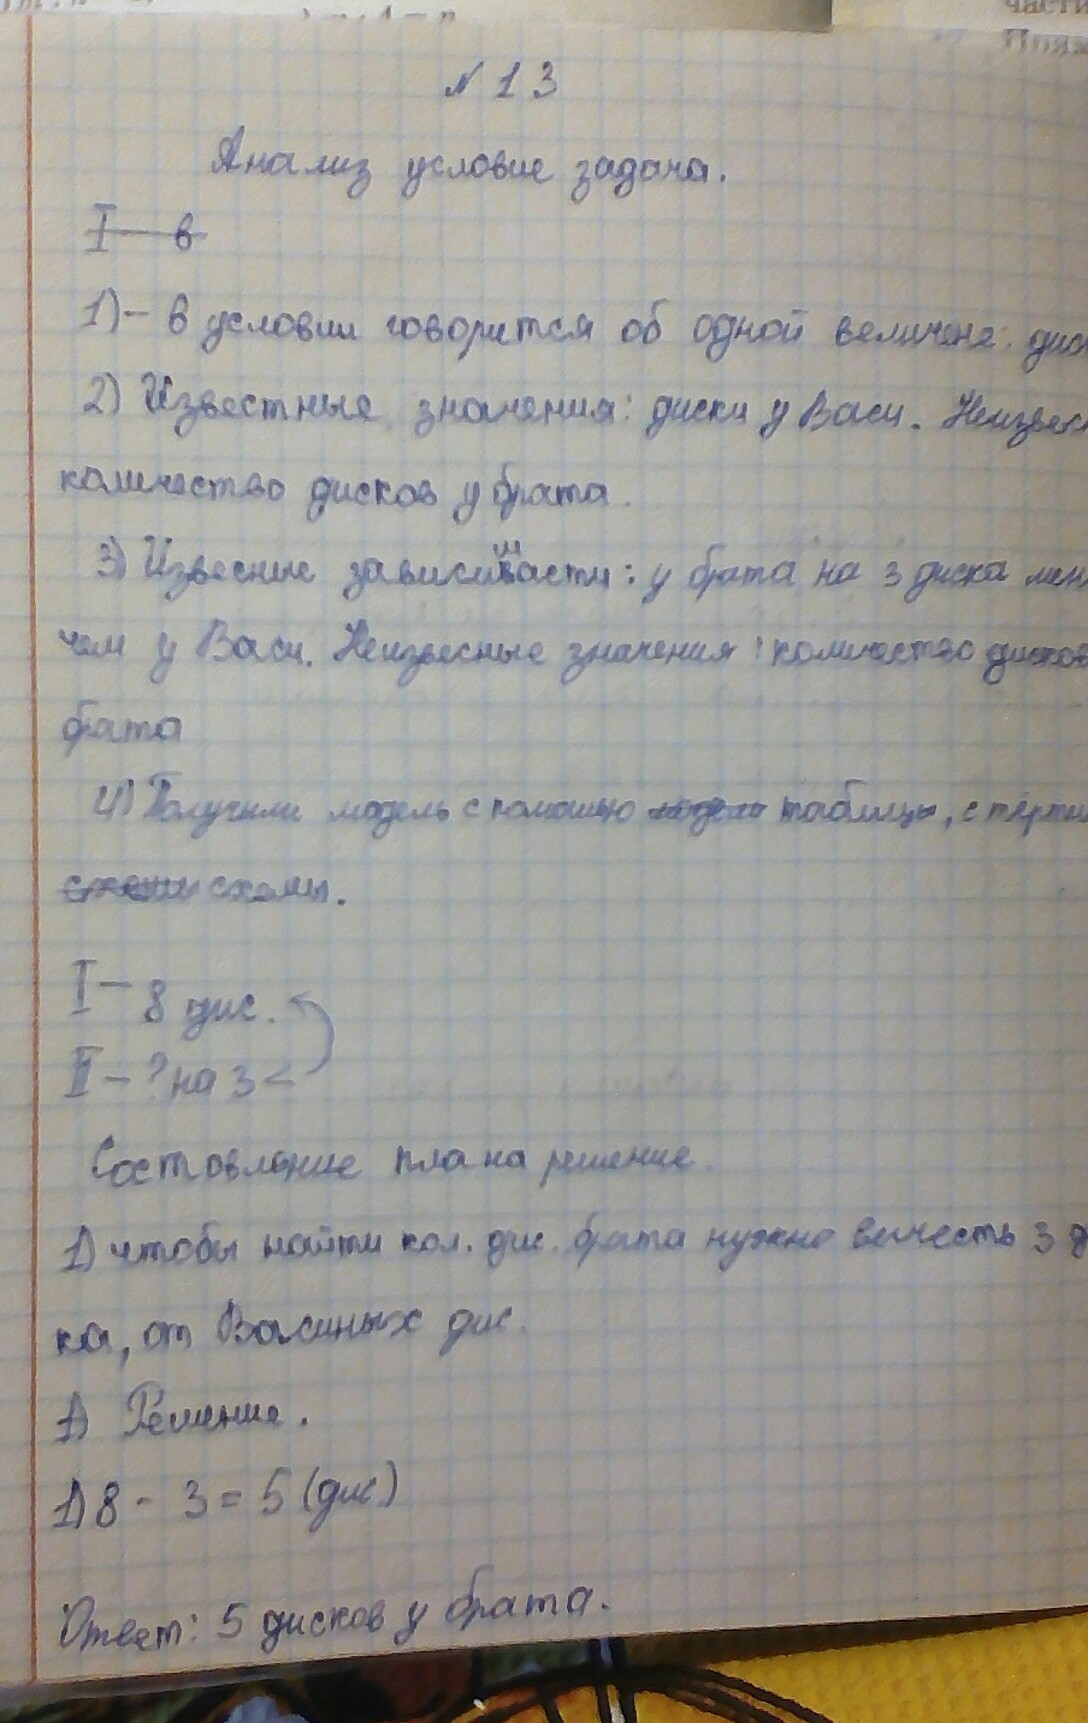 части
№ 13
Анализ условие задача.
I — в
1) – в условии говорится об одной величене: диск
2) Известные значения: диски у Васи. Неизвес
количество дисков у брата.
3) Извесные зависимасти: у брата на 3 диска мен
чем у Васи. Неизвесные значения: количество дисков
брата
4) Получили модель с помошью таблицы, с
схемы.
I – 8 дис.
II – ? на 3 <
Состовление плана решение.
1) чтобы найти кол. дис. брата нужно вычесть 3 д
ка, от Васиных дис.
1) Решение.
1) 8 - 3 = 5 (дис.)
Ответ: 5 дисков у брата.